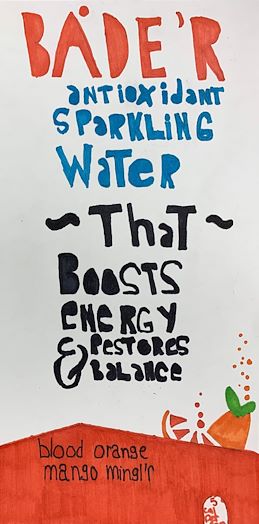 BÅDE'R
antioxidant
SPARKLING
Water
~ That ~
BOOSTS
ENERGY
& RESTORES
BALANCE
blood orange
mango mingl'r